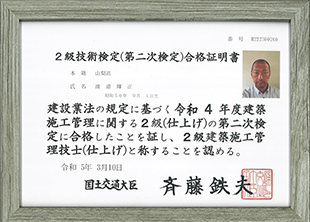 ２級技術検定(第二次検定)合格証明書
本籍 山梨県
建設業法の規定に基づく令和４年度建築
施工管理に関する２級(仕上げ)の第二次検
定に合格したことを証し、２級建築施工管
理技士(仕上げ)と称することを認める。
令和 5年 3月10日
国土交通大臣 斉藤鉄夫